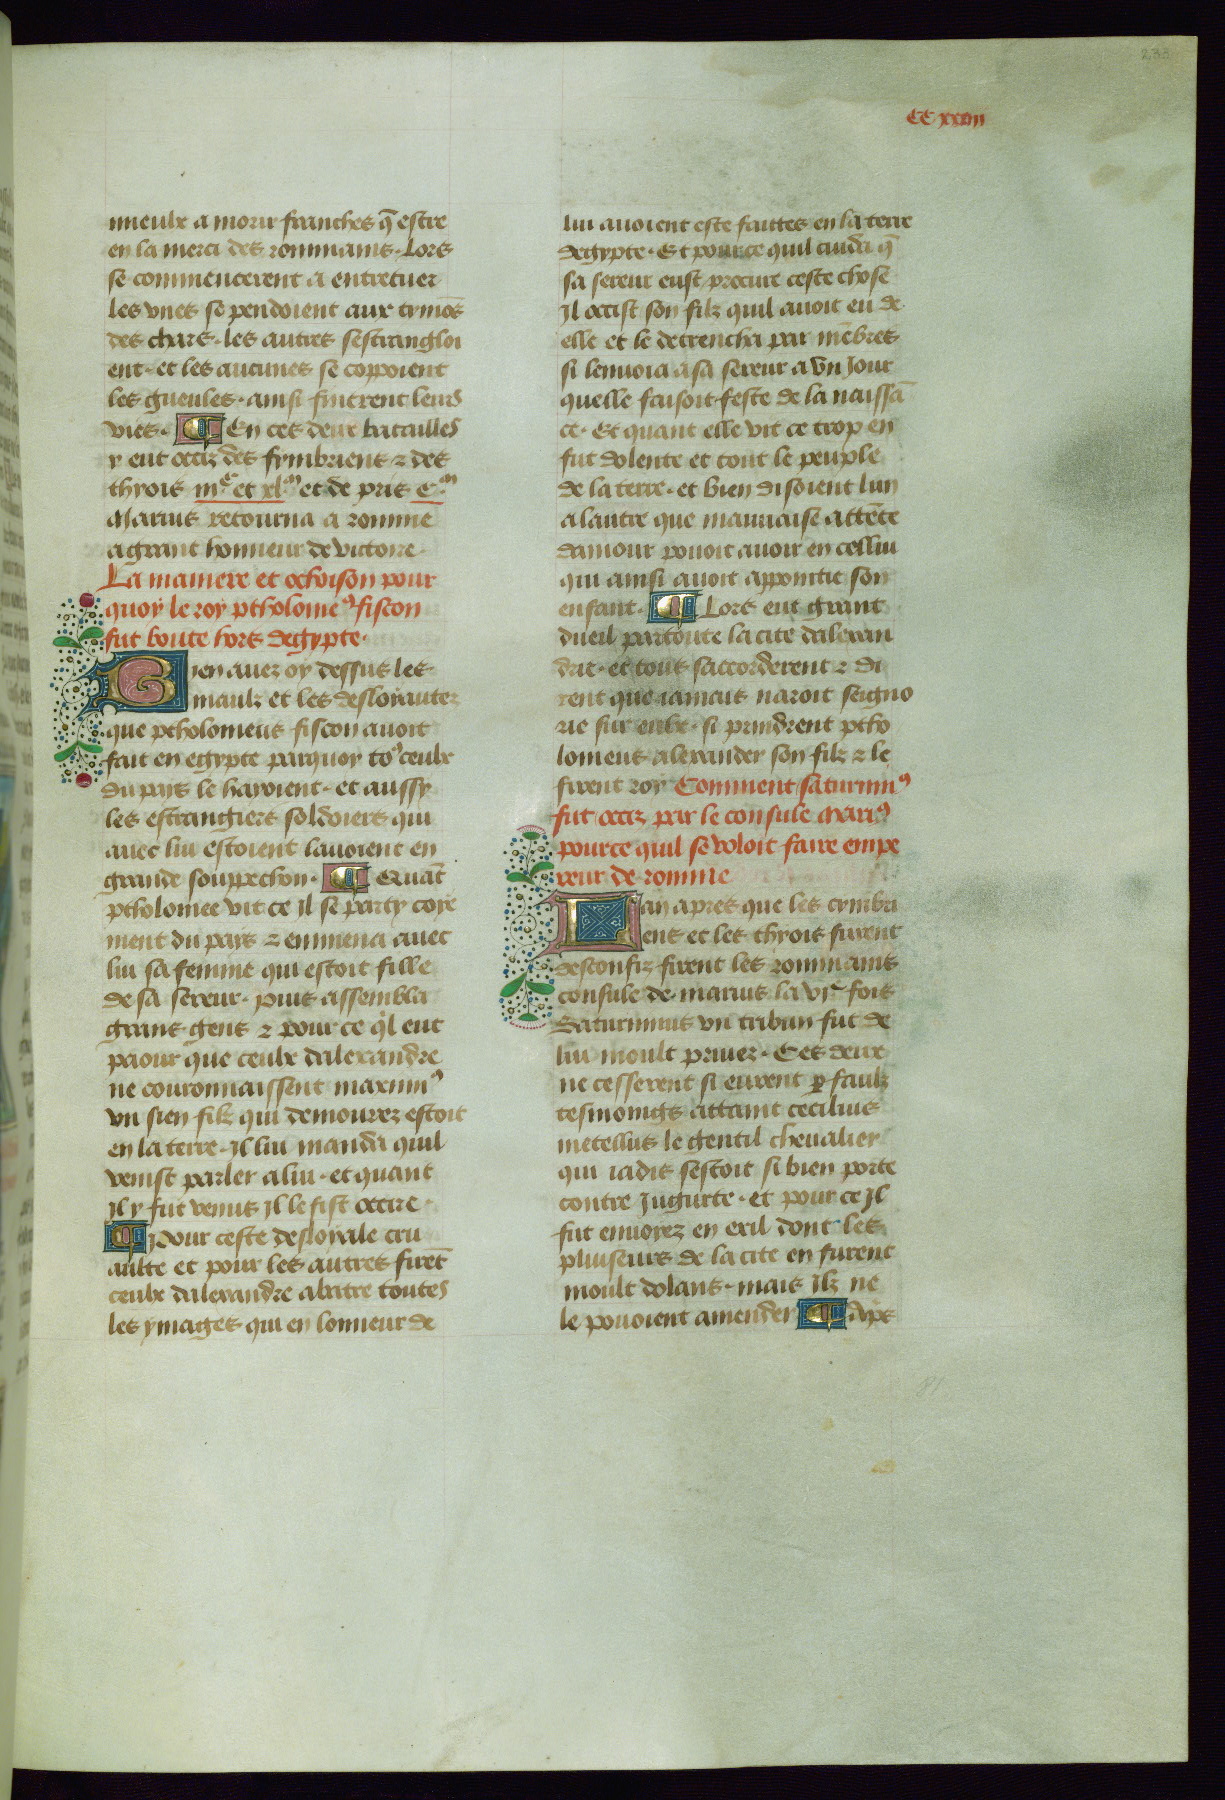 233
CC xxxiii
mieulx a morir franches q̄ estre
en la merci des rommains. Lors
se commencerent a entretuer
les vnes se pendoient aux tymōs
des chars. les autres sestrangloi
ent. et les aucunes se coppoient
les gueules. ainsi finerent leurs
vies. ¶ En ces deux batailles
y eut occiz des fymbriens ⁊ des
thyois iiiᶜ et xlᵐ et de pris Cᵐ
Marius retourna a romme
a grant honneur de victoire.
La maniere et ochoison pour
quoy le roy ptholomeꝰ fiscon
fut boute hors degypte.
Bien auez oy dessus les
maulx et les desloyautez
que ptholomeus fiscon auoit
fait en egypte parquoy toꝰ ceulx
du pays le hayoient. et aussy
les estrangiers soldoiers qui
auec lui estoient lauoient en
grande souppechon. ¶ Quāt
ptholomee vit ce Il se party coye
ment du pays ⁊ emmena auec
lui sa femme qui estoit fille
de sa sereur. puis assembla
grans gens ⁊ pour ce ql eut
paour que ceulx dalexandre
ne couronnaissent maximꝰ
vn sien filz qui demourez estoit
en la terre. Il lui manda quil
venist parler a lui. et quant
Il y fut venus Il le fist occire.
¶ Pour ceste desloyale cru
aulte et pour les autres firēt
ceulx dalexandre abatre toutes
les ymages qui en lonneur de
lui auoient este faittes en la terre
degypte. Et pource quil cuida q̄
sa sereur eust procure ceste chose
Il occist son filz quil auoit eu de
elle et le detrencha par mēbres
si lenuoia a sa sereur a vn Jour
quelle faisoit feste de la naissā
ce. Et quant elle vit ce trop en
fut dolente et tout le peuple
de la terre. et bien disoient lun
a lautre que mauuaise attēte
damour pouoit auoir en cellui
qui ainsi auoit appointie son
enfant. ¶ Lors eut grant
dueil partoute la cite dalexan
drie. et tous saccorderent ⁊ di
rent que iamais naroit seigno
rie sur eulx. si prindrent ptho
lomeus alexander son filz ⁊ le
firent roy Comment saturninꝰ
fut occiz par le consule mariꝰ
pource quil se voloit faire empe
reur de romme
Lan apres que les cymbri
ens et les thyois furent
desconfiz firent les rommains
consule de marius la viᵉ fois
Saturninus vn tribun fut de
lui moult priuez. Ces deux
ne cesserent si eurent ꝑ faulx
tesmoings attaint cecilius
metellus le gentil cheualier
qui iadis sestoit si bien porte
contre Jugurte. et pour ce Il
fut enuoyez en exil dont les
pluiseurs de la cite en furent
moult dolans. mais Ilz ne
le pouoient amender ¶ Apꝛs